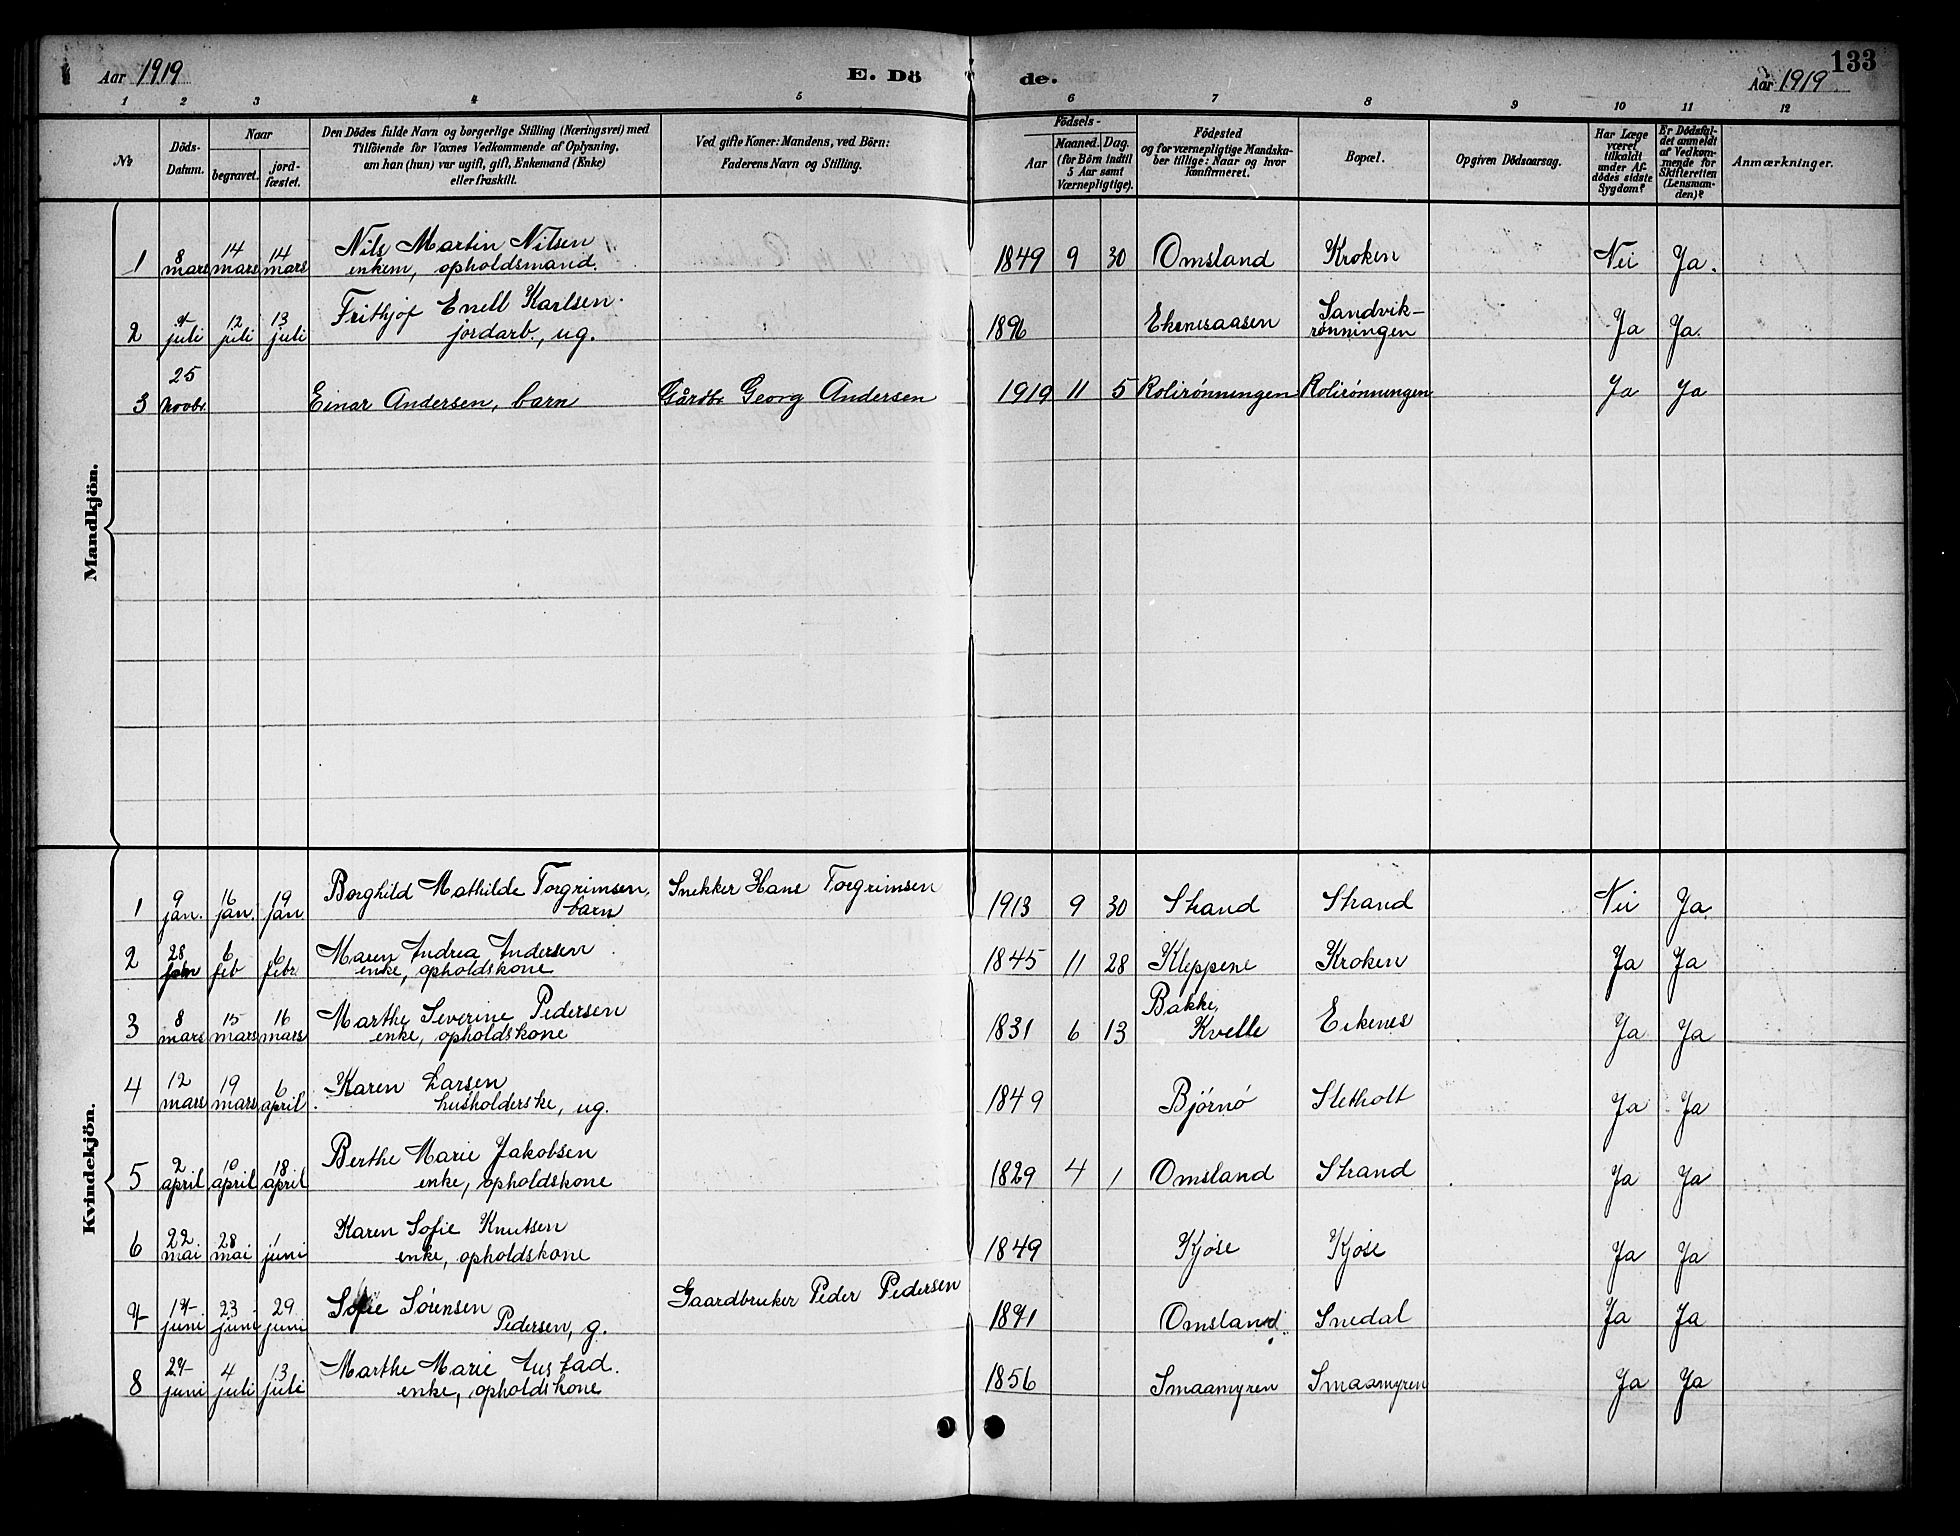 133
Aar 1919
E. Dö
de.
Aar 1919
1 2 3 4 5 6 7 8 9 10 11 12
No
Döds-
Datum.
Naar
begravet.
jord-
fæstet.
Den Dödes fulde Navn og borgerlige Stilling (Næringsvei) med
Tilföiende for Voxnes Vedkommende af Oplysning,
om han (hun) var ugift, gift, Enkemand (Enke)
eller fraskilt.
Ved gifte Koner: Mandens, ved Börn:
Faderens Navn og Stilling.
Födsels-
Aar
Maaned. Dag.
(for Börn indtil
5 Aar samt
Værnepligtige).
Födested
og for værnepligtige Mandska-
ber tillige: Naar og hvor
konfirmeret.
Bopæl.
Opgiven Dödsaarsag.
Har Læge
været
tilkaldt
under Af-
dödes sidste
Sygdom?
Er Dödsfal-
det anmeldt
af Vedkom-
mende for
Skifteretten
(Lensman-
den)?
Anmærkninger.
Mandkjön.
1 8 mars 14 mars 14 mars Nils Martin Nilsen
enkem, opholdsmand. 1849 9 30 Omsland Kroken Nei Ja.
2 7 juli 12 juli 13 juli Frithjof Enell Karlsen.
jordarb., ug. 1896 Ekenesaasen Sandvik-
rønningen Ja Ja.
3 25 novbr. Einar Andersen, barn Gårdbr. Georg Andersen 1919 11 5 Rolirønningen Rolirønningen Ja Ja
Kvindekjön.
1 9 jan. 16 jan. 19 jan Borghild Mathilde Torgrimsen,
barn Snekker Hans Torgrimsen 1913 9 30 Strand Strand Nei Ja
2 28 jan 6 feb 6 febr. Maren Andrea Andersen
enke, opholdskone 1845 11 28 Kleppene Kroken Ja Ja
3 8 mars 15 mars 16 mars Marthe Severine Pedersen
enke, opholdskone 1831 6 13 Bakke,
Kvelle Eikenes Ja Ja
4 12 mars 19 mars 6 april. Karen Larsen
husholderske, ug. 1849 Bjørnø Sletholt Ja Ja
5 2 april 10 april 18 april Berthe Marie Jakobsen
enke, opholdskone 1829 4 1 Omsland Strand Ja Ja
6 22 mai 28 mai 1 juni Karen Sofie Knutsen
enke, opholdskone 1849 Kjøse Kjøse Ja Ja
7 17 juni 23 juni 29 juni Sofie Sörensen
Pedersen, g. Gaardbruker Peder Pedersen 1871 Omsland Snedal Ja Ja
8 27 juni 4 juli 13 juli Marthe Marie Austad.
enke, opholdskone 1856 Smaamyren Smaamyren Ja Ja